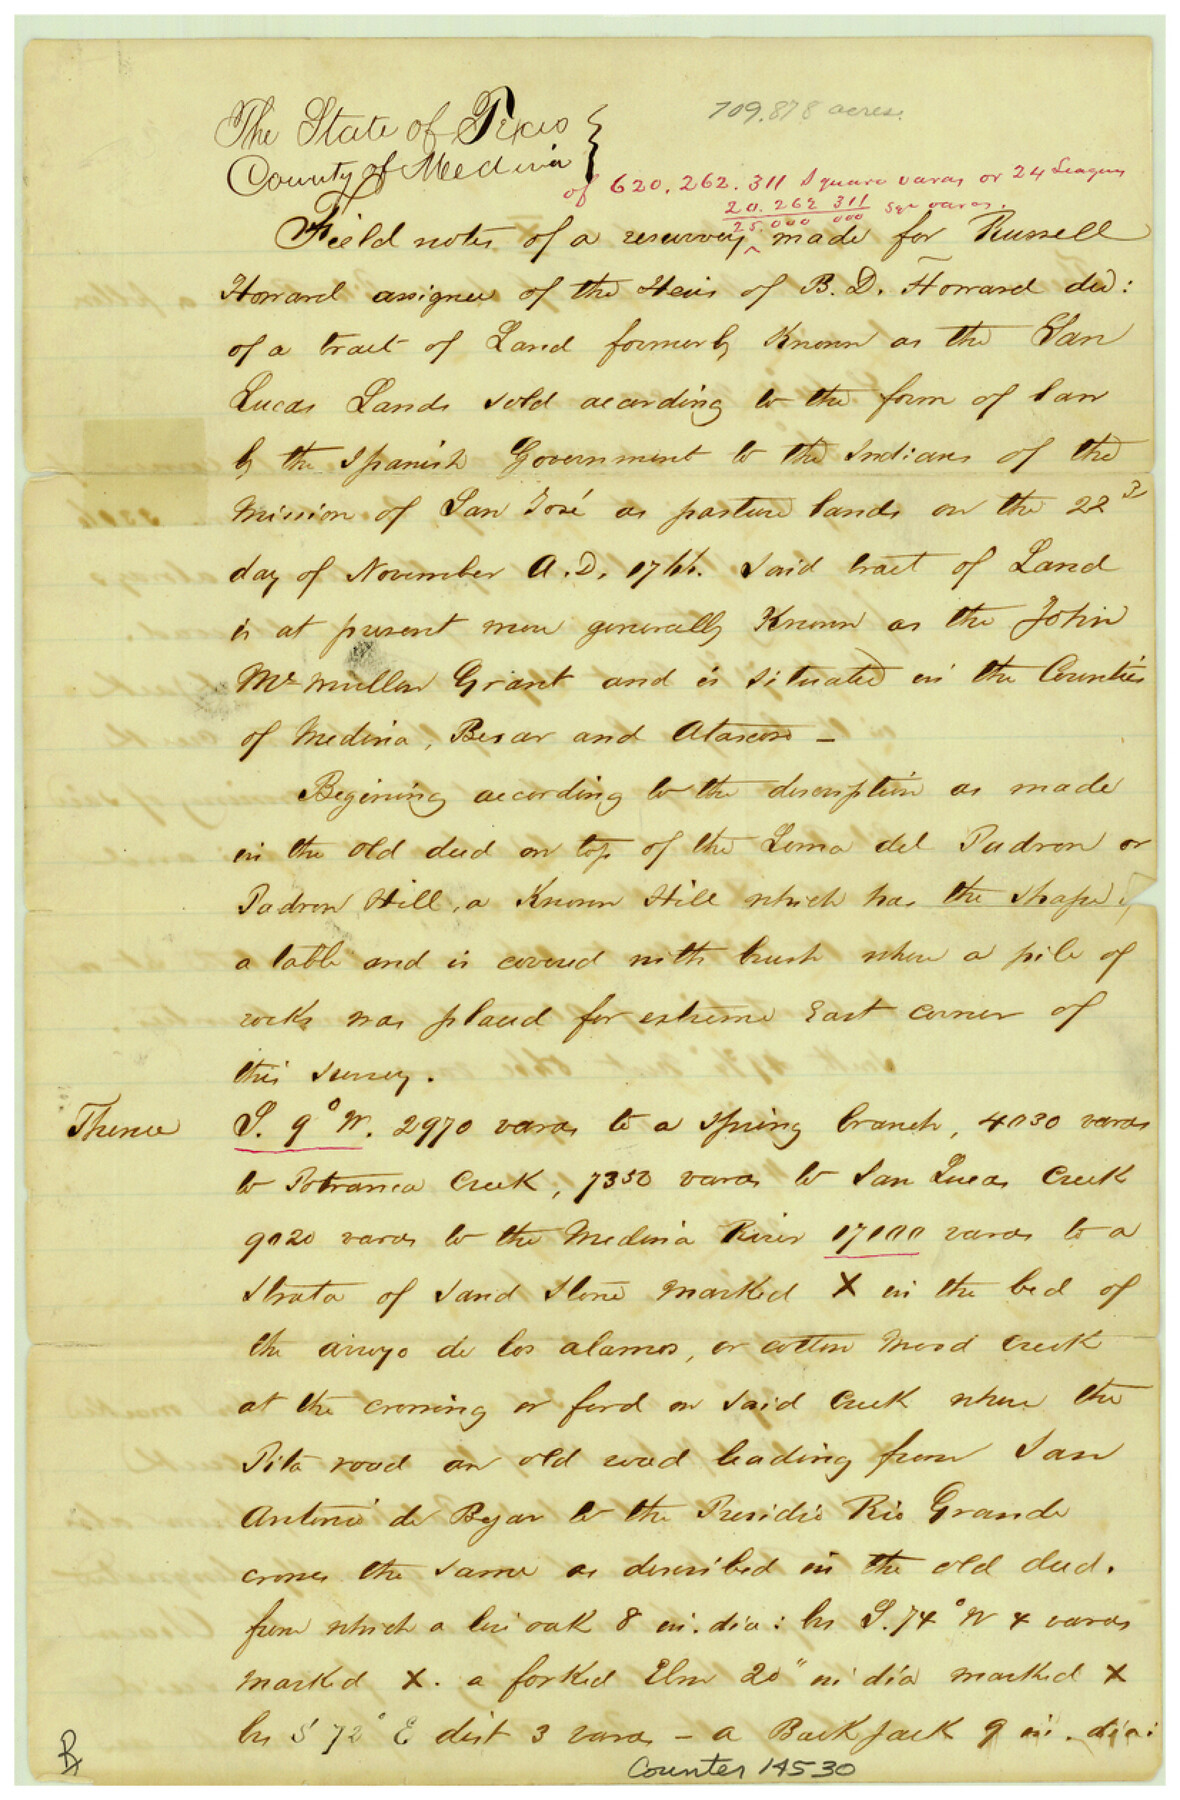 709.878 acres.
The State of Texas
County of Medina
of 620.262.311 Square varas or 24 Leagues
20.262 311
25.000 000 Sqr varas.
Field notes of a resurvey made for Russell
Howard assignee of the Heirs of B. D. Howard decd:
of a tract of Land formerly Known as the San
Lucas Lands sold according to the form of law
by the Spanish Government to the Indians of the
Mission of San José as pasture lands on the 22d
day of November A.D. 1766. Said tract of Land
is at present more generally Known as the John
McMullen Grant and is situated in the Counties
of Medina, Bexar and Atascosa –
Begining according to the description as made
in the old deed on top of the Loma del Padron or
Padron Hill, a Known Hill which has the shape of
a table and is covered with brush where a pile of
rocks was placed for extreme East corner of
this survey.
Thence S. 9° W. 2970 varas to a Spring branch, 4030 varas
to Potranca Creek, 7350 varas to San Lucas Creek
9020 varas to the Medina River 17000 varas to a
Strata of Sand Stone marked X in the bed of
the arroyo de los alamos, or cotton Wood creek
at the crossing or ford on said Creek where the
Pita road an old road leading from San
Antonio de Bejar to the Presidio Rio Grande
crosses the same as described in the old deed.
from which a live oak 8 in. dia: brs S. 74° W 4 varas
marked X. a forked Elm 20" in dia marked X
brs S 72° E dist 3 varas – a Back Jack 9 in. dia:
Counter 14530